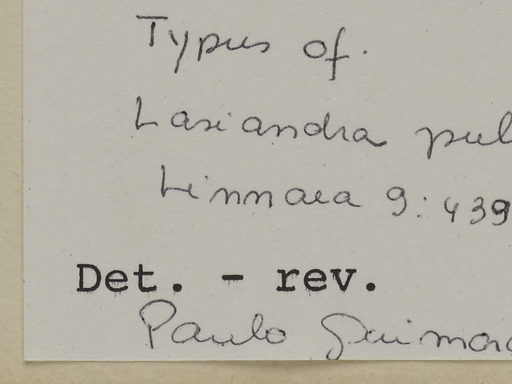 Typus of.
Lasiandra pul
Linnaea 9: 439
Det. - rev.
Paulo Guimara